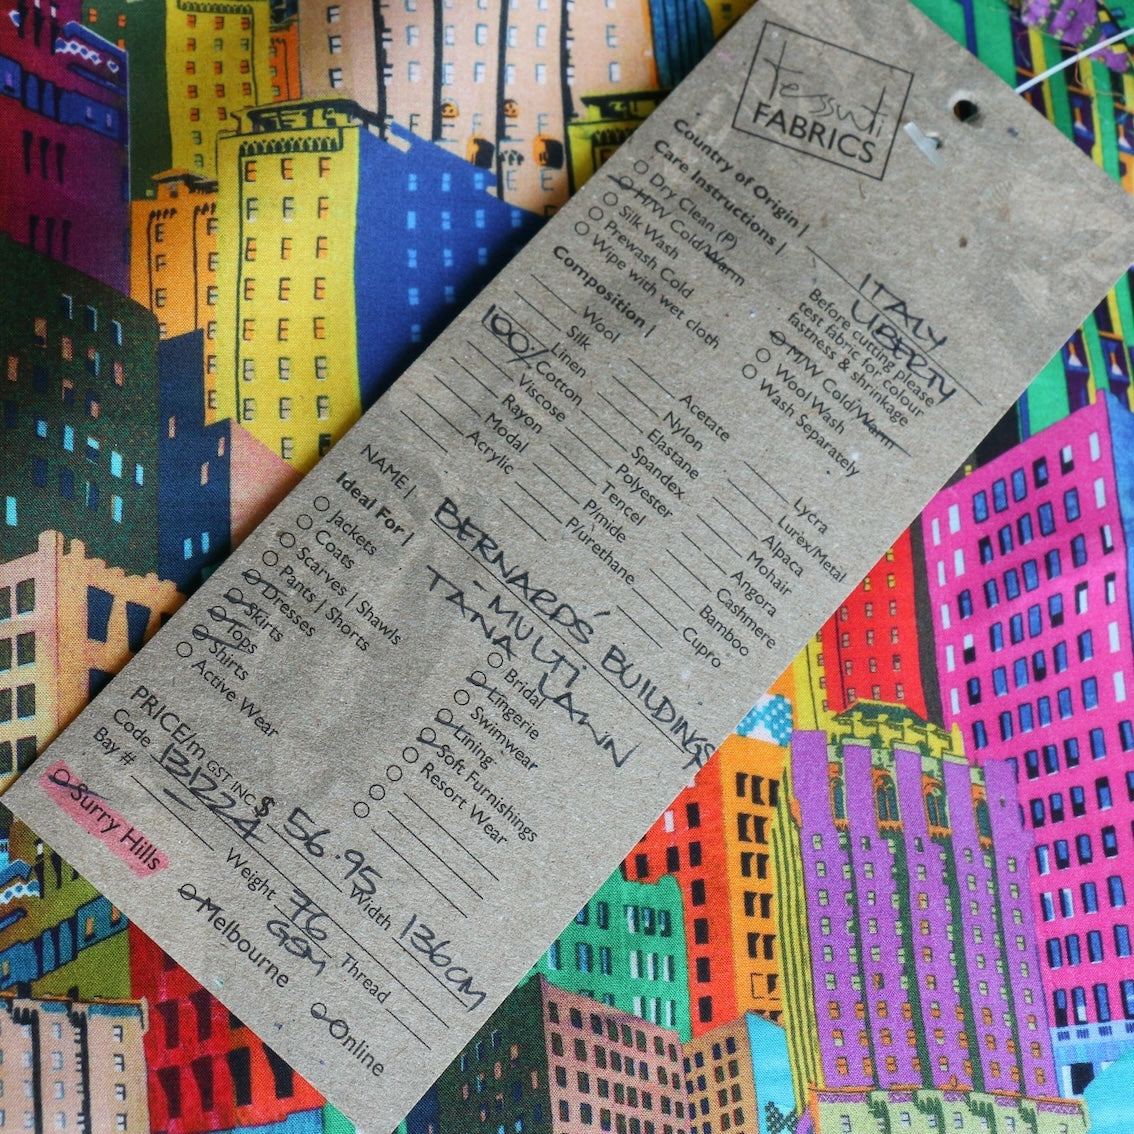 tessuti
FABRICS
Country of Origin | ITALY
LIBERTY
Care Instructions |
Before cutting please
test fabric for colour
fastness & shrinkage
Dry Clean (P)
H/W Cold/Warm
Silk Wash
Prewash Cold
Wipe with wet cloth
M/W Cold/Warm
Wool Wash
Wash Separately
Composition |
Wool
Silk
Linen
100% Cotton
Viscose
Rayon
Modal
Acrylic
Acetate
Nylon
Elastane
Spandex
Polyester
Tencel
P/mide
P/urethane
Lycra
Lurex/Metal
Alpaca
Mohair
Angora
Cashmere
Bamboo
Cupro
NAME | BERNARDS' BUILDINGS
- MULTI
TANA LAWN
Ideal For |
Jackets
Coats
Scarves | Shawls
Pants | Shorts
Dresses
Skirts
Tops
Shirts
Active Wear
Bridal
Lingerie
Swimwear
Lining
Soft Furnishings
Resort Wear
PRICE/m GST INC $ 56.95
Code 131224 Width 136CM
Bay # Weight 76 GSM Thread
Surry Hills Melbourne Online